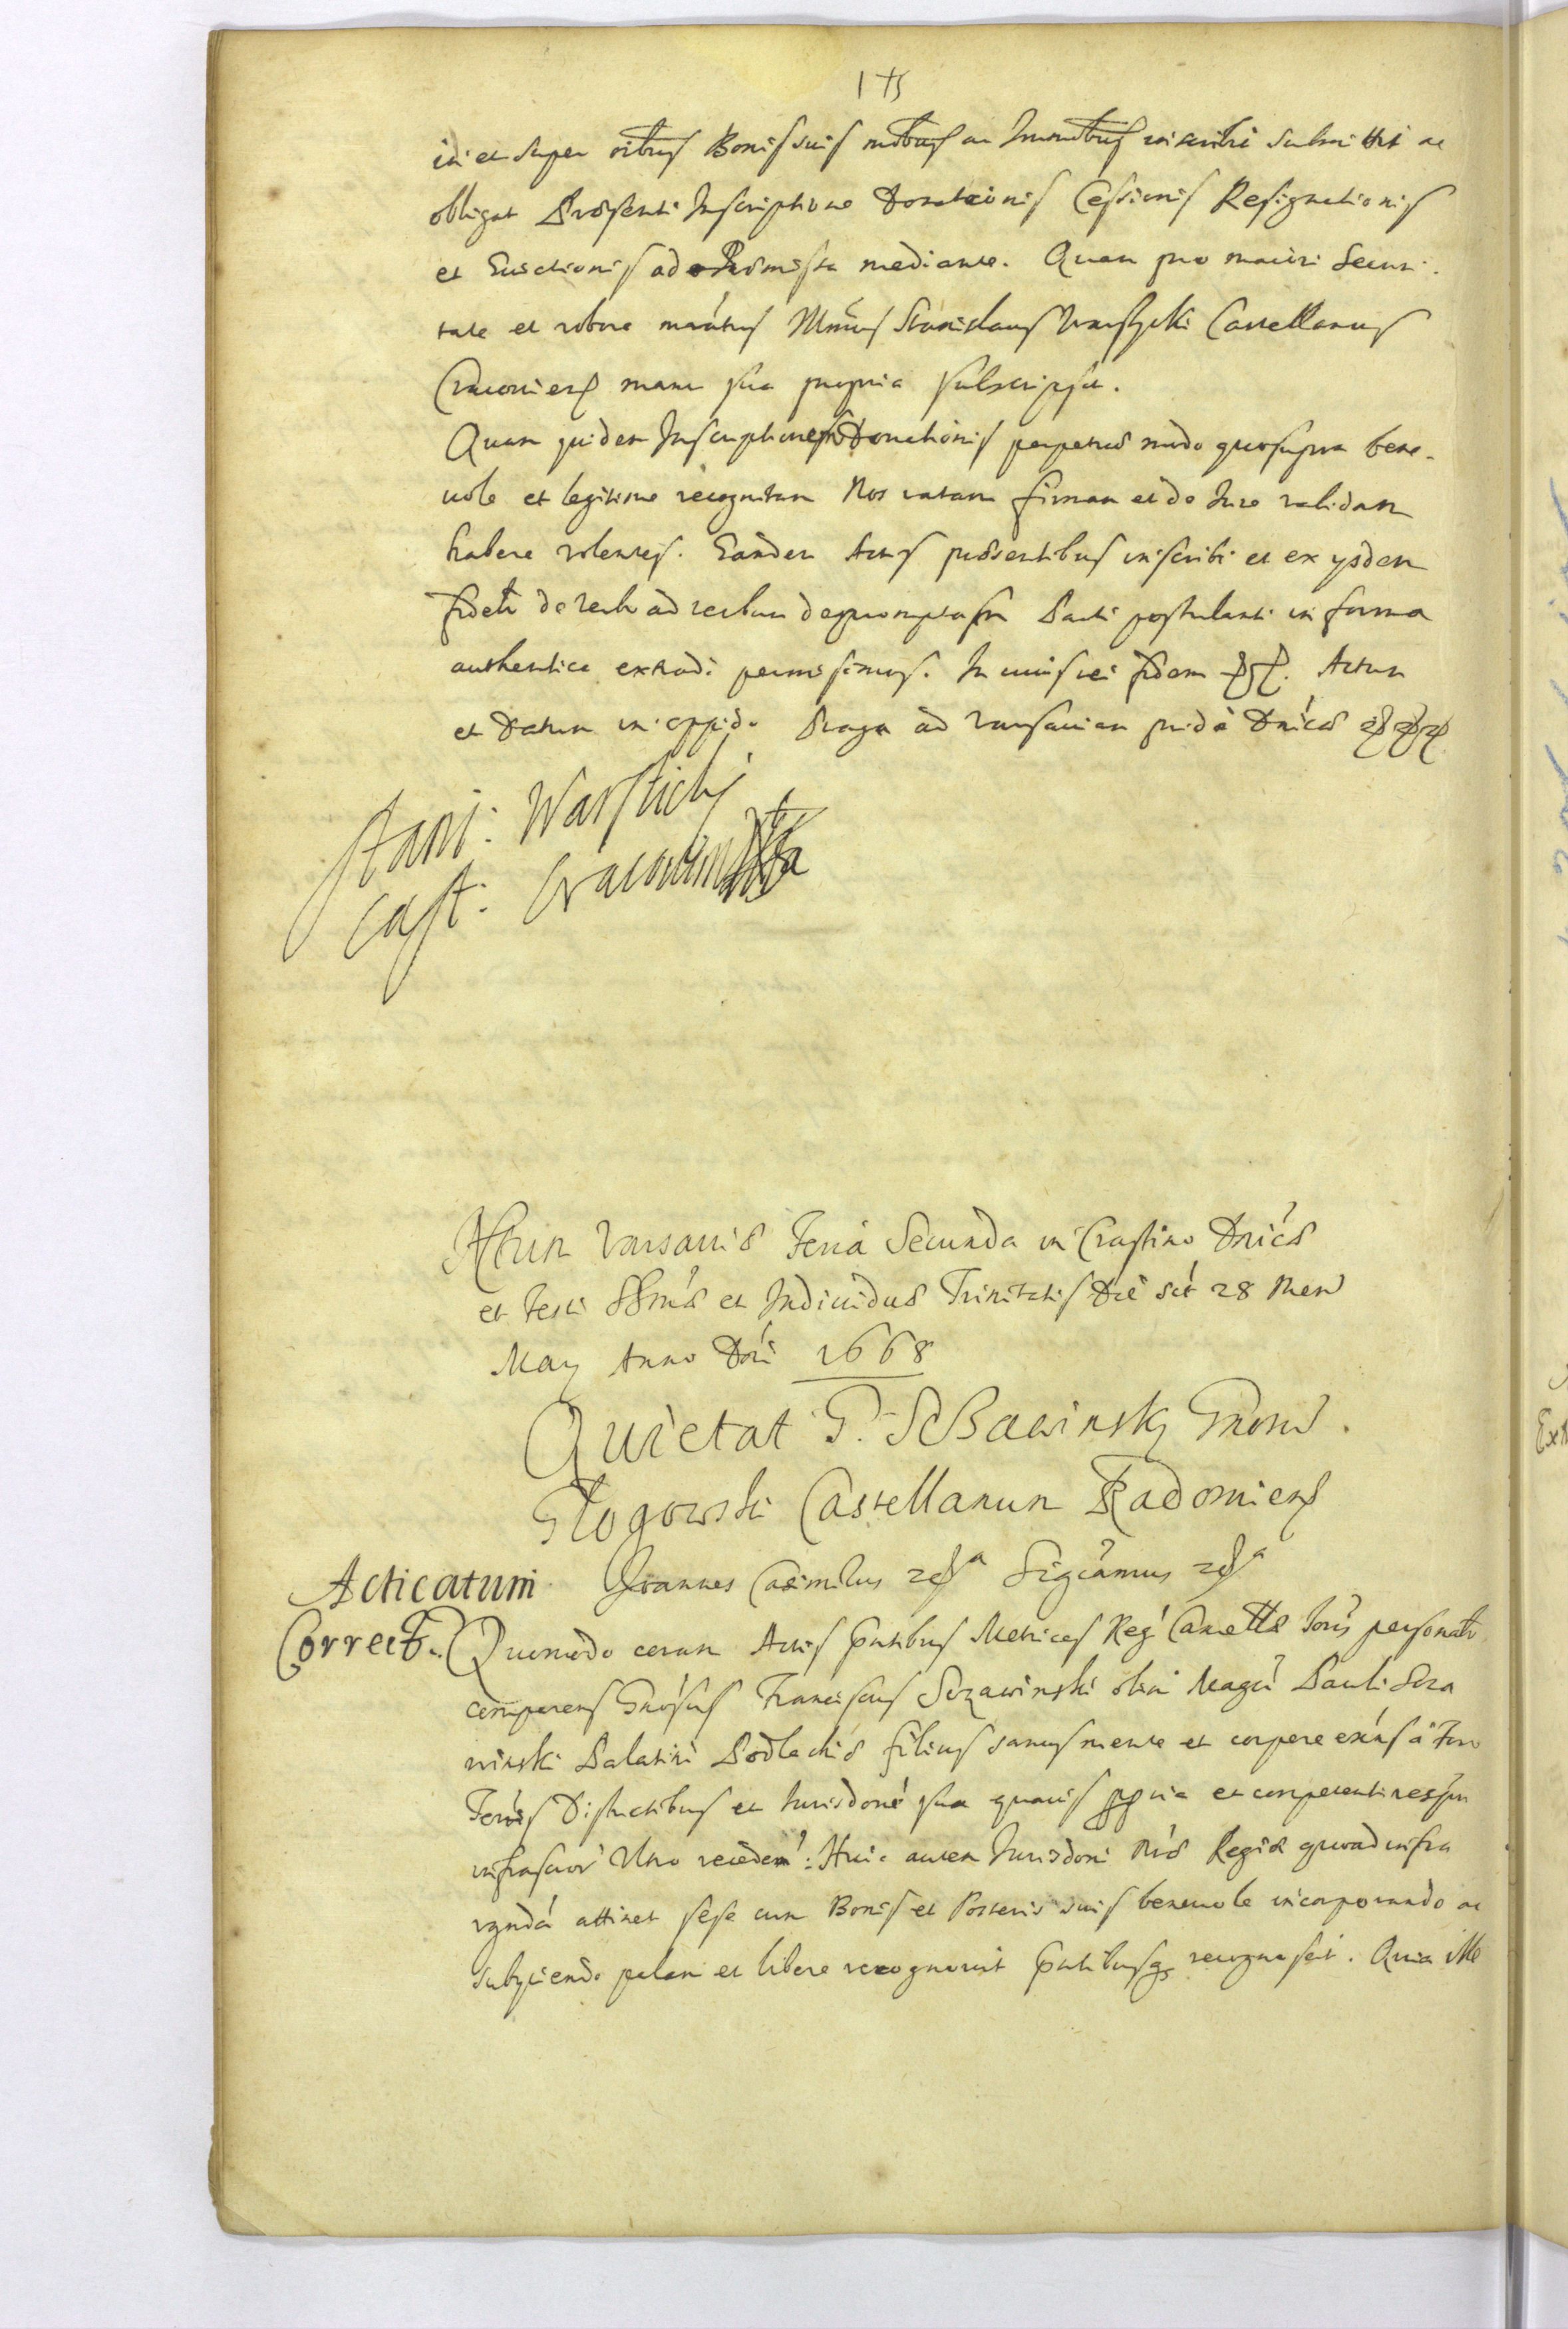 et super oibus Bonis suis mobus ac Immobus inscribi submitti ac
obligat Præsenti Inscriptione Donationis Cessionis Resignationis
et Euictionis ad præmissa mediante. Quam pro maiori securi-
tate et robore Mgcus Stanislaus Warszycki Castellanus
Cracovien manu sua propria subscripsit.
Quam quidem Inscriptionem Donationis perpetuæ modo quo supra bene-
uole et legitime recognitam Nos ratam firmam et de Iure validam
habere volentes. Eandem Actis præsentibus inscribi et ex ysdem
fideli de verbo ad verbum depromptam Parti postulanti in forma
authentica extradi permisimus. In cuius rei fidem Actum
et Datum in oppido Praga ad Varsauiam pridie Dnicæ
Stani: Warszicki
Cast: Cracouien
Actum Varsauiæ Feria Secunda in Crastino Dnicæ
et Festi SSmæ et Indiuiduæ Trinitatis Die sct 28 Mens
May Anno Dni 1668
Quietat G. Sczawinsky Gnosu
Głogowski Castellanum Radomiens
Acticatum Joannes Casimirus Sigcamus
Correct. Quomodo coram Actis Pntibus Metrices Reg CancellæIoris personalr
comparens Gnosus Franciscus Sczawinski olim Magci Pauli Scza
winski Palatini Podlachiæ filius sanus mente et corpore exins a Foro
Terris Districtibus et Iurisdone sua quauis ppria et competenti resptu
infrascr vno recedem: Huic autem Iurisdoni Ris Regiæ quoad infra
rgnda attinet sese cum Bonis et Posteris suis beneuole incorporando ac
subyciendo palam et libere recognouit Pntibusq recognoscit. Quia ille